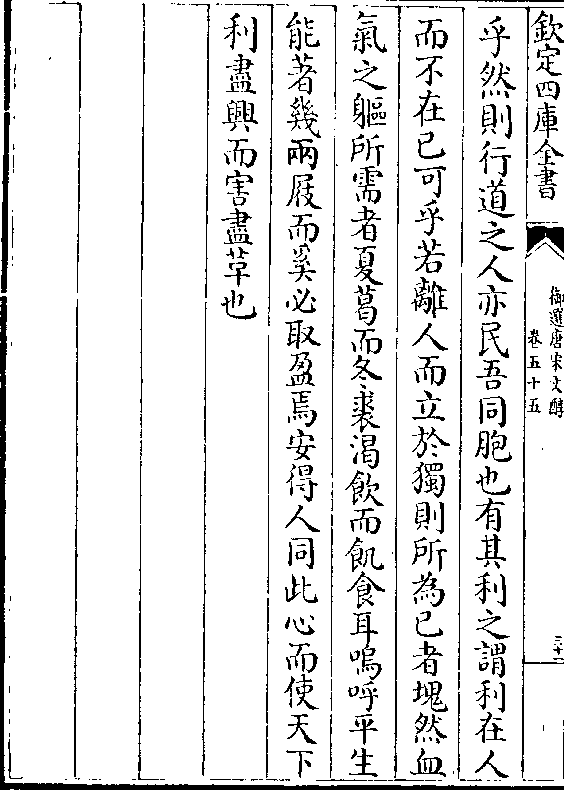 欽定四庫全書
御選唐宋文醇
卷五十五
三十二
乎然則行道之人亦民吾同胞也有其利之謂利在人
而不在已可乎若離人而立於獨則所為已者塊然血
氣之軀所需者夏葛而冬裘渴飲而飢食耳嗚呼平生
能著幾兩屐而奚必取盈焉安得人同此心而使天下
利盡興而害盡革也